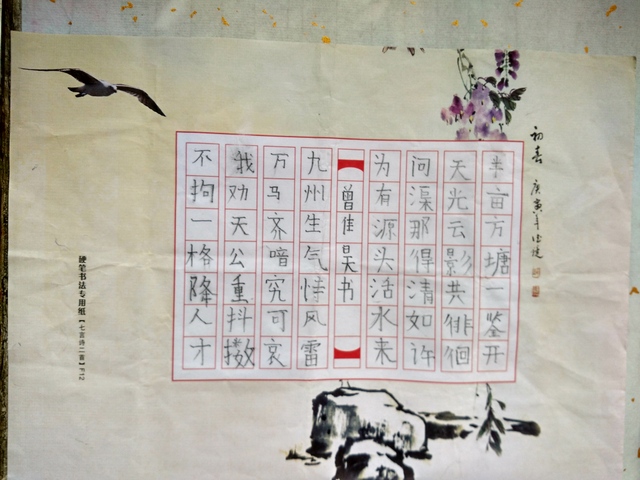 庚寅年
半亩方塘一鉴开
天光云影共徘徊
问渠那得清如许
为有源头活水来
曾佳昊书
九州生气恃风雷
万马齐喑究可哀
我劝天公重抖擞
不拘一格降人才
硬笔书法专用纸【七言诗二首】F12